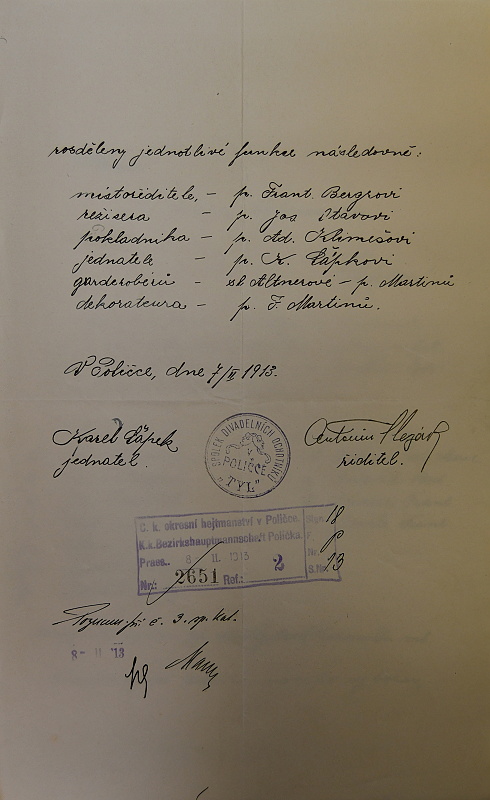 rozděleny jednotlivé funkce následovně:
místořiditele, – p. Frant. Bergrovi
režisera – p. Jos Šťávovi
pokladníka – p. Ad. Klimešovi
jednatele – p. K. Čápkovi
garderobiérů – sl Altnerové – p. Martinů
dekorateura – p. F. Martinů.
V Poličce, dne 7/II 1913.
Karel Čápek
jednatel.
SPOLEK DIVADELNÍCH OCHOTNÍKŮ
V
POLIČCE
„TYL"
Antonín
řiditel.
C. k. okresní hejtmanství v Poličce.
K.k. Bezirkshauptmannschaft Polička.
Praes. 8 II. 1913 2
Nr.: 2651 Ref.:
18
F. P
Nr.
S.Nr. 13
Poznum. při č. 3. sp. kat.
8 – II '13